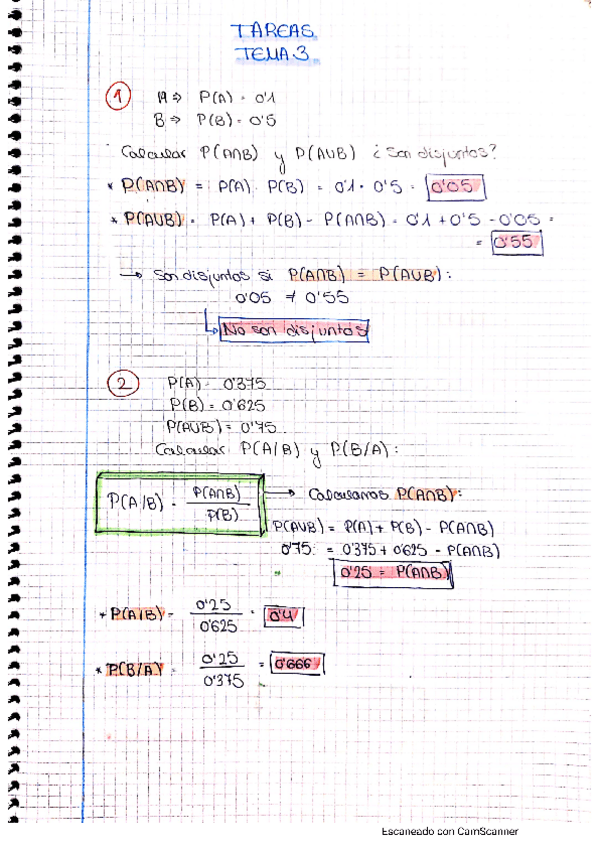 TAREAS
TEMA 3
1 A ⇒ P(A) = 0'1
B ⇒ P(B) = 0'5
Calcular P(A∩B) y P(A∪B) ¿Son disjuntos?
* P(A∩B) = P(A) · P(B) = 0'1 · 0'5 = 0'05
* P(A∪B) = P(A) + P(B) - P(A∩B) = 0'1 + 0'5 - 0'05 =
= 0'55
→ Son disjuntos si P(A∩B) = P(A∪B):
0'05 ≠ 0'55
No son disjuntos
2 P(A) = 0'375
P(B) = 0'625
P(A∪B) = 0'75
Calcular P(A/B) y P(B/A):
P(A/B) = P(A∩B) / P(B) → Calculamos P(A∩B):
P(A∪B) = P(A) + P(B) - P(A∩B)
0'75 = 0'375 + 0'625 - P(A∩B)
0'25 = P(A∩B)
* P(A/B) = 0'25 / 0'625 = 0'4
* P(B/A) = 0'25 / 0'375 = 0'666
Escaneado con CamScanner